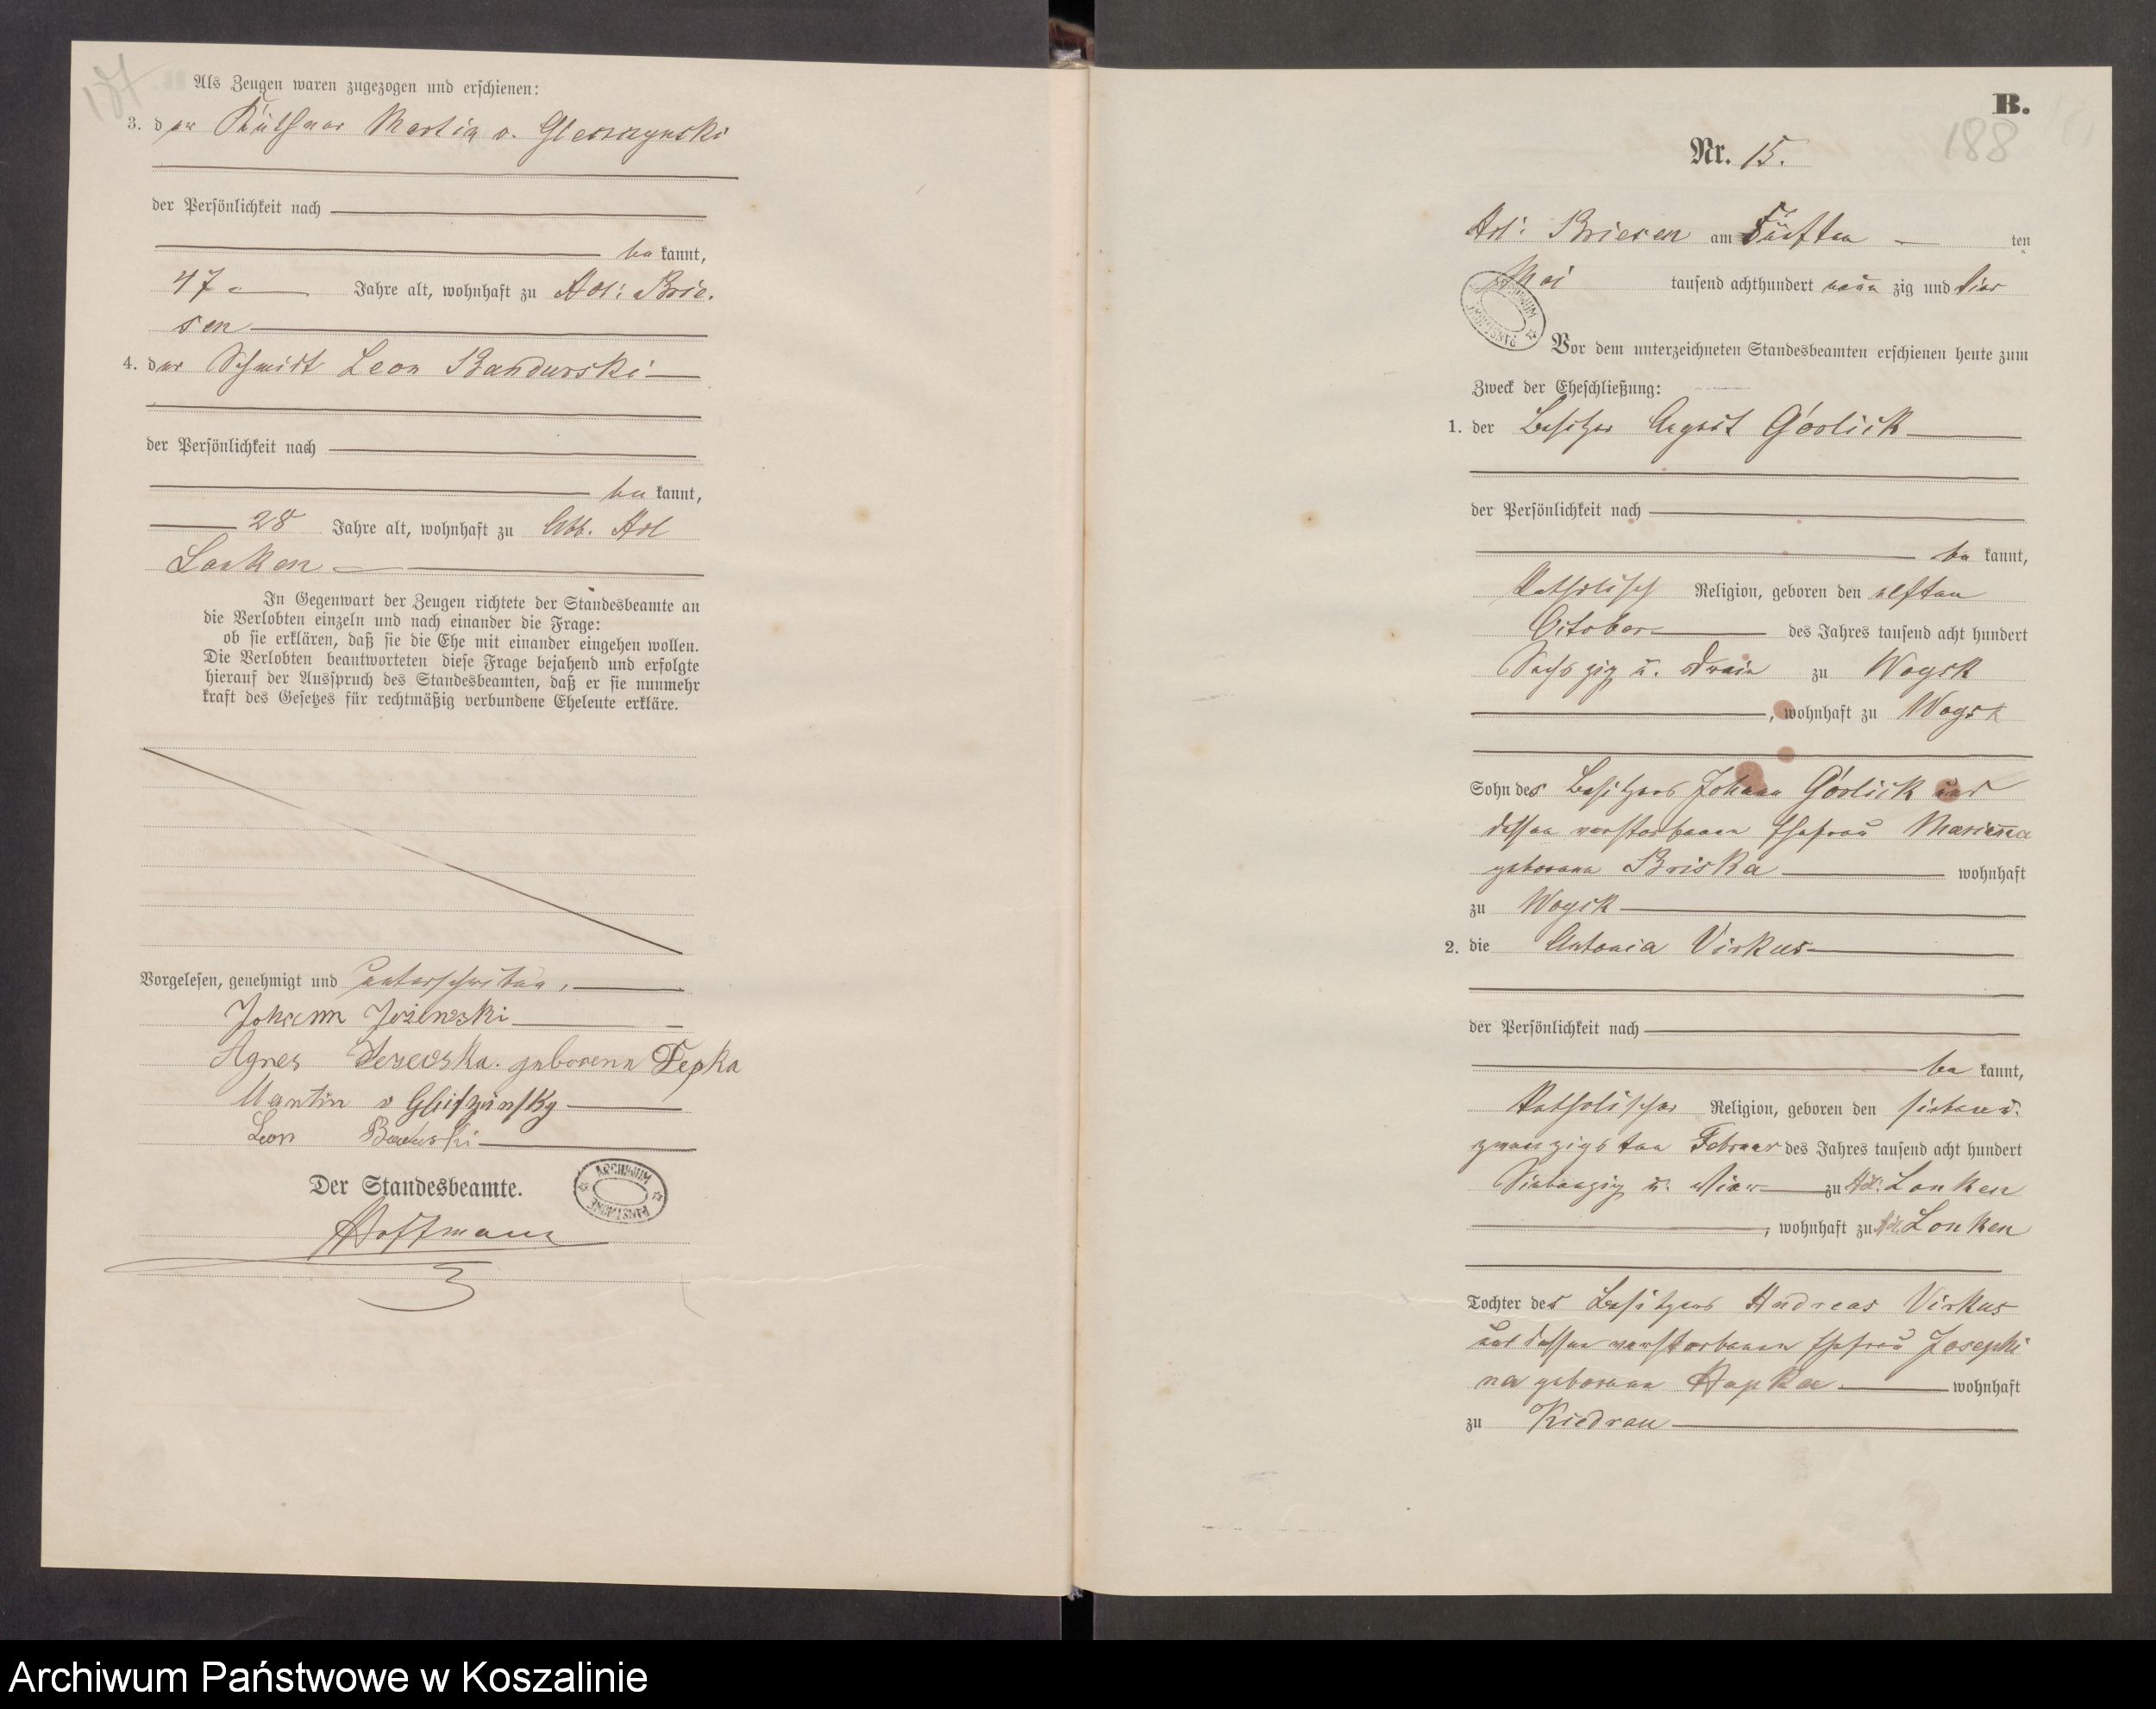 187
Als Zeugen waren zugezogen und erschienen:
3. der Büdner Martin v. Gleszczynski
der Persönlichkeit nach
be kannt,
47 Jahre alt, wohnhaft zu Adl: Brie-
sen
4. der Schmidt Leon Bandurski
der Persönlichkeit nach
be kannt,
28 Jahre alt, wohnhaft zu Abb. Adl
Lonken
In Gegenwart der Zeugen richtete der Standesbeamte an
die Verlobten einzeln und nach einander die Frage:
ob sie erklären, daß sie die Ehe mit einander eingehen wollen.
Die Verlobten beantworteten diese Frage bejahend und erfolgte
hierauf der Ausspruch des Standesbeamten, daß er sie nunmehr
kraft des Gesetzes für rechtmäßig verbundene Eheleute erkläre.
Vorgelesen, genehmigt und unterschrieben.
Johann
Agnes geborene Depka
Martin v
Leon
Der Standesbeamte.
ARCHIWUM PAŃSTWOWE
Hoffmann
B.
188
Nr. 15.
Adl: Briesen am Fünften ten
Mai tausend achthundert neun zig und vier
ARCHIWUM PAŃSTWOWE
Vor dem unterzeichneten Standesbeamten erschienen heute zum
Zweck der Eheschließung:
1. der Besitzer August Görlick
der Persönlichkeit nach
be kannt,
katholisch Religion, geboren den elften
October des Jahres tausend acht hundert
Sechszig u. drein zu Woysk
, wohnhaft zu Woysk
Sohn des Besitzers Johann Görlick und
dessen verstorbenen Ehefrau Marianna
geborene Briska wohnhaft
zu Woysk
2. die Antonia Virkus
der Persönlichkeit nach
be kannt,
katholischer Religion, geboren den sieben u.
zwanzigsten Februar des Jahres tausend acht hundert
Siebenzig u. vier zu Adl. Lonken
, wohnhaft zu Adl. Lonken
Tochter des Besitzers Andreas Virkus
und dessen verstorbenen Ehefrau Josephi
na geborene Hapka wohnhaft
zu Kiedrau
Archiwum Państwowe w Koszalinie